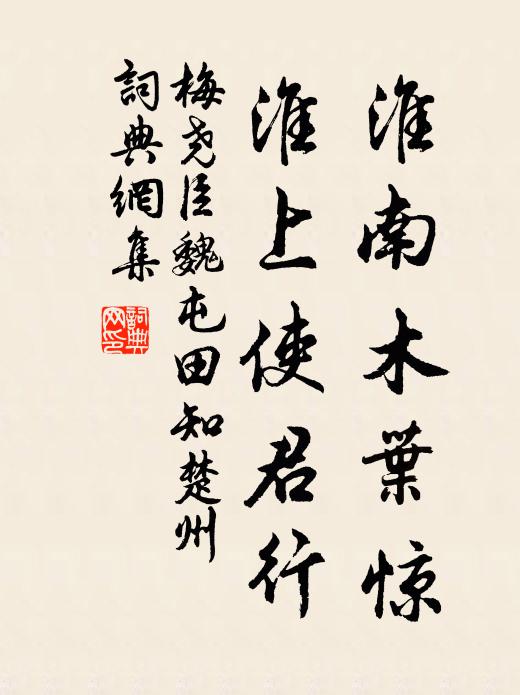 淮南木葉惊
淮上使君行
梅尧臣魏屯田知楚州
詞典網集
詞典网印